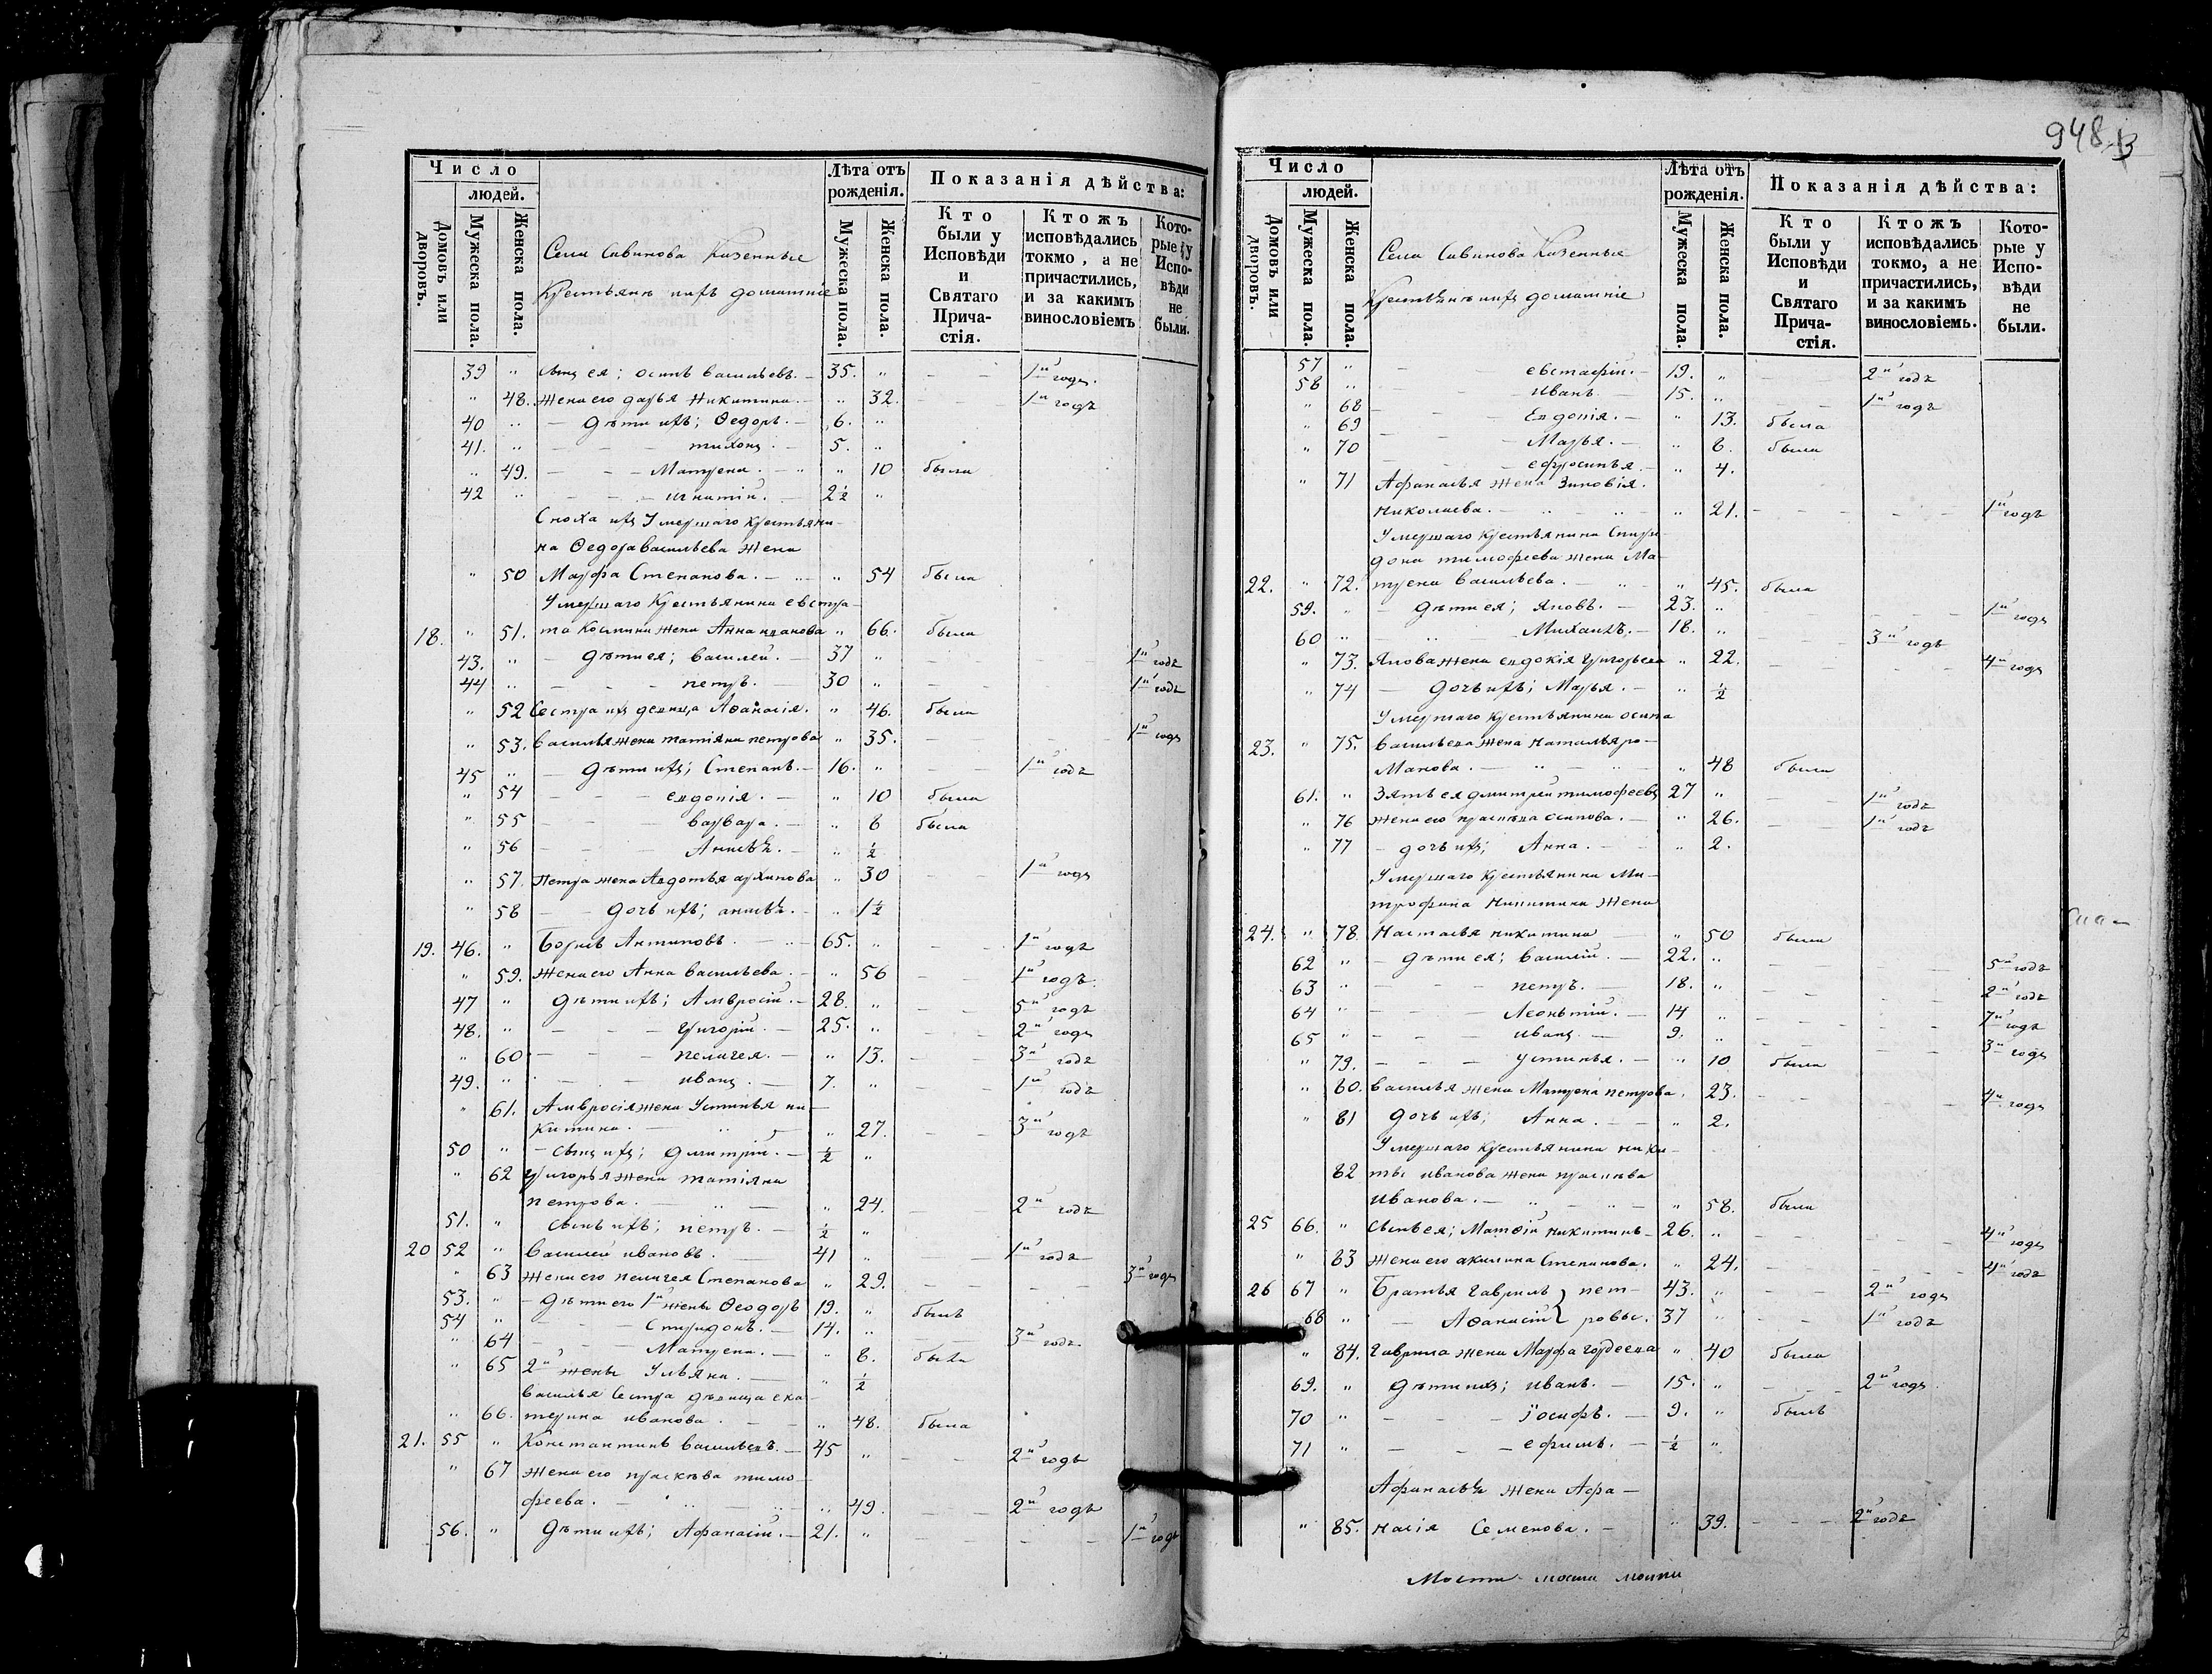 Число
людей.
Домовъ или дворовъ.
Мужеска пола.
Женска пола.
Села Савинова Казенные
Крестьяне ихъ домашніе
Лѣта отъ рожденія.
Мужеска пола.
Женска пола.
Показанія дѣйства:
Кто были у Исповѣди и Святаго Прича-стія.
Ктожъ исповѣдались токмо, а не причастились, и за какимъ винословіемъ
Кото-рые у Испо-вѣди не были.
39 " сынъ ея; осипъ васильевъ. — 35. " — — 1й годъ.
" 48. жена его дарья Никитина. — " 32. — — 1й годъ
40 " — дѣти ихъ; Ѳедоръ. — 6. "
41. " — — — тихонъ. — 5. "
" 49. — — — Матрена. — " 10 была
42 " — — — игнатій. — 2½ "
Сноха ихъ Умершаго Крестьяни-
на Ѳедора васильева жена
" 50 Марфа Степанова. — " 54 была
Умершаго Крестьянина евстра-
18. " 51. та Козмина жена Анна иванова " 66. была
43. " — дѣти ея; василей. — 37 " — — — 1й годъ
44 " — — — петръ. — 30 " — — — 1й годъ
" 52 Сестра ихъ девица Аѳанасія. " 46. была
" 53. василья жена татіяна петрова " 35. — — — 1й годъ
45 " — дѣти ихъ; Степанъ. — 16. " — — 1й годъ
" 54 — — — евдокія. — " 10 была
" 55 — — — варвара. — " 8 была
" 56 — — — Анисья. — " ½
" 57. Петра жена Авдотья архипова " 30 — — 1й годъ
" 58 — — дочь ихъ; анисья. — " 1½
19. 46. " Борисъ Антиповъ. — 65. " — — 1й годъ
" 59. жена его Анна васильева. — " 56 — 1й годъ.
47 " дѣти ихъ; Амвросій. — 28. " — — 5й годъ
48. " — — — Григорій. — 25. " — — 2й годъ
" 60 — — — пелагея. — " 13. — — 3й годъ
49. " — — — иванъ. — 7. " — — 1й годъ
" 61. Амвросія жена Устинья ни-
китина. — " 27. — — 3й годъ
50 " — сынъ ихъ; дмитрій. — ½ "
" 62 Григорья жена татіяна
петрова. — " 24. — 2й годъ
51. " сынъ ихъ; петръ. — ½ "
20 52 " Василей ивановъ. — 41 " — — 1й годъ
" 63 жена его пелагея Степанова " 29. — — — 3й годъ
53. " — дѣти его 1й жены Ѳеодоръ 19. " былъ
54 " — — — Спиридонъ. — 14. " — — 3й годъ.
" 64 — — — Матрена. — " 8. была
" 65 2й жены Ульяна. — " ½
василья Сестра дѣвица ека-
" 66. терина иванова. — " 48. была
21. 55 " Константинъ васильевъ. — 45 " — — 2й годъ
" 67 жена его прасковья тимо-
феева. — " 49. — — 2й годъ
56. " дѣти ихъ; Афанасій. — 21. " — — — — 1й годъ
948
Число
людей.
Домовъ или дворовъ.
Мужеска пола.
Женска пола.
Села Савинова Казенные
Крестьяне ихъ домашніе
Лѣта отъ рожденія.
Мужеска пола.
Женска пола.
Показанія дѣйства:
Кто были у Исповѣди и Святаго Прича-стія.
Ктожъ исповѣдались токмо, а не причастились, и за какимъ винословіемъ.
Кото-рые у Испо-вѣди не были.
57 " — — евстафій. — 19. " — — 2й годъ
58 " — — иванъ. — 15. " — 1й годъ
" 68 — — Евдокія. — " 13. была
" 69 — — Марья. — " 8. была
" 70 — — ефросинья. — " 4.
" 71 Афанасья жена Зиновія.
Николаева. — " 21. — — — — 1й годъ
Умершаго Крестьянина Спири-
дона тимофеева жена Ма-
22. " 72. трена васильева. — " 45. была
59. " — дѣти ея; яковъ. — 23. " — — — 1й годъ
60 " " Михаилъ. — 18. " — — 3й годъ
" 73. Якова жена евдокія Григорьева " 22. — — — 4й годъ
" 74 — дочь ихъ; Марья. — " ½
Умершаго Крестьянина осипа
23. " 75. васильева жена наталья ро-
манова. — " 48 была
61. " Зять ея дмитрій тимофеевъ 27 " — — 1й годъ
" 76 жена его прасковья осипова. — " 26. — — 1й годъ
" 77 — дочь ихъ; Анна. — " 2.
Умершаго Крестьянина Ми-
трофана Никитина Жена
24. " 78. Настасья никитина " 50 была
62 " — дѣти ея; василій. — 22. " — — — 5й годъ
63 " — — — петръ. — 18. " — — — 2й годъ
64 " — — — Леонтій. — 14 " — — — 7й годъ
65 " — — — иванъ. — 9. " — — — 3й годъ
" 79. — — — устинья. — " 10 была
" 80. василья жена Матрена петрова. 23. — — — 4й годъ
" 81 дочь ихъ; Анна. — " 2.
Умершаго Крестьянина ники-
82 ты иванова жена прасковья
иванова. — " 58. была
25 66. " сынъ ея; Матѳій никитинъ — 26. " — — — 4й годъ
" 83 жена его акилина Степанова. " 24. — — — 4й годъ
26 67 " Братья Гаврилъ } пет- 43. " — — 2й годъ
68 " — Аѳанасій } ровы. 37 " — — 1й годъ
" 84. Гаврила жена Марфа Гордеева " 40 была
69. " дѣти ихъ; иванъ. — 15. " — — — 2й годъ.
70 " — — — іосифъ. — 9. " былъ
71 " — — — ефимъ. — ½ "
Афанасья жена Афа-
" 85. насія Семенова. — " 39. — — — 2й годъ